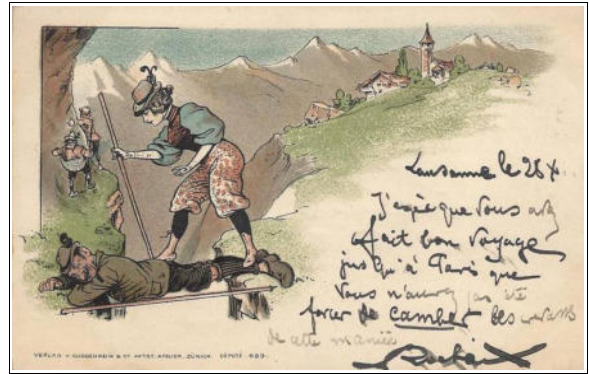 Lausanne le 26 X.
J'espère que vous avez
fait bon voyage
jusqu'à Paris que
vous n'aurez pas été
forcer de camber les
de cette manière
VERLAG v. GUGGENHEIM & Co. ARTST. ATELIER, ZÜRICH. DÉPOSÉ 689.